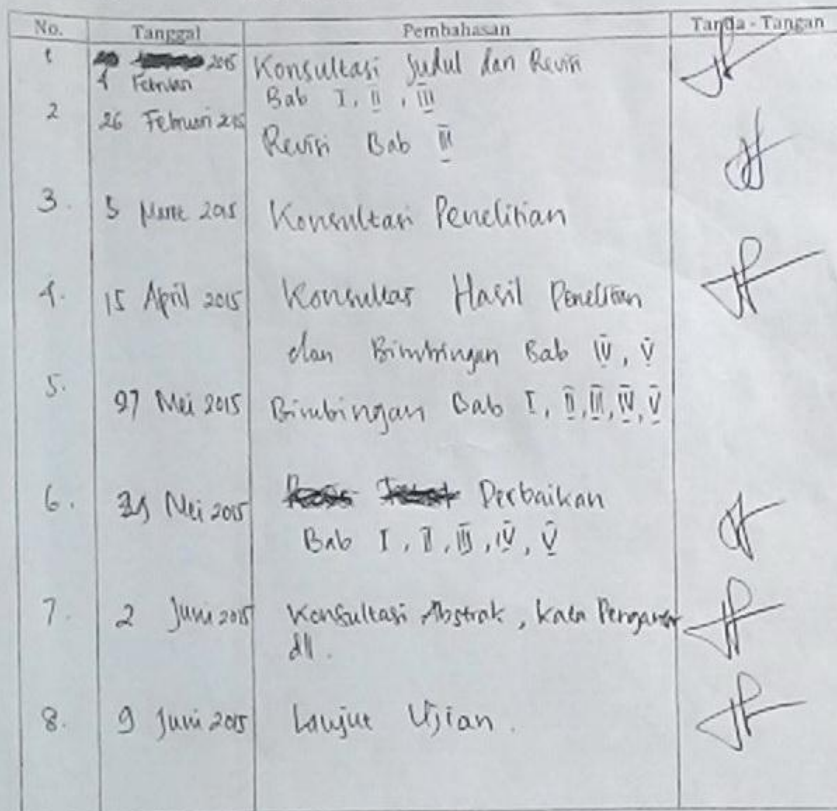 No. Tanggal Pembahasan Tanda - Tangan
1 2015 Konsultasi Judul dan Revisi
4 Februari Bab I, II, III
2 26 Februari 2015 Revisi Bab III
3. 5 Maret 2015 Konsultasi Penelitian
4. 15 April 2015 Konsultasi Hasil Penelitian
dan Bimbingan Bab IV, V
5. 27 Mei 2015 Bimbingan Bab I, II, III, IV, V
6. Mei 2015 Perbaikan
Bab I, II, III, IV, V
7. 2 Juni 2015 Konsultasi Abstrak, Kata Pengantar
dll.
8. 9 Juni 2015 Lanjut Ujian.